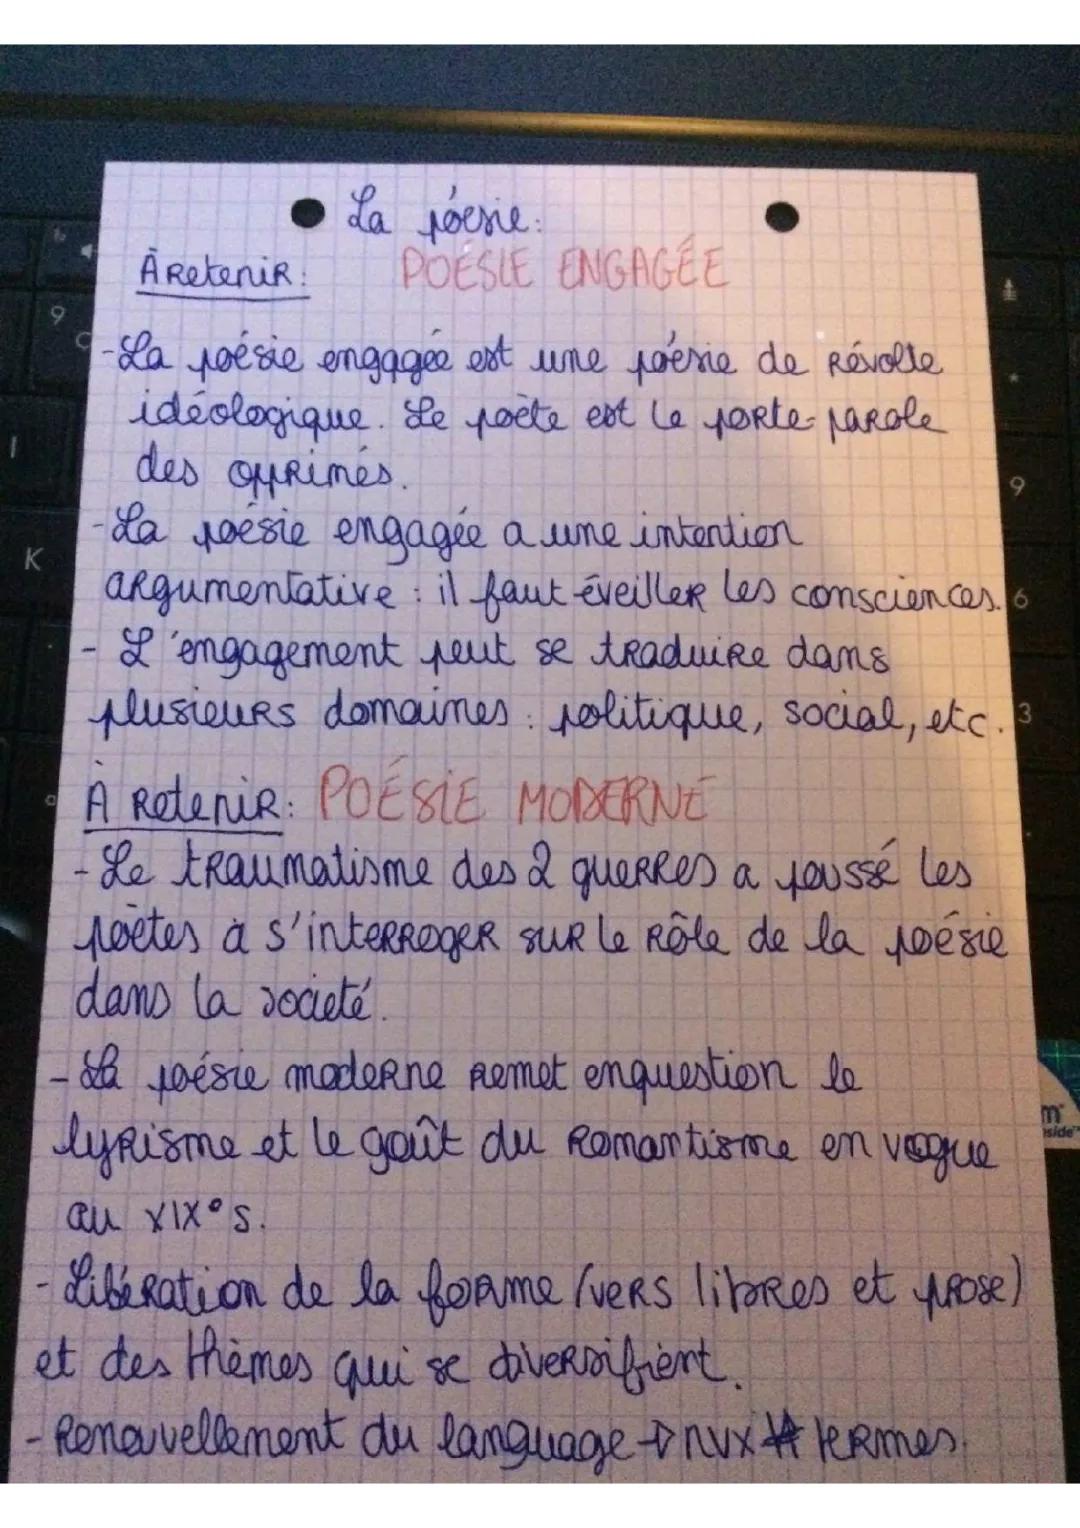 La poésie:
À Retenir: POÉSIE ENGAGÉE
-La poésie engagée est une poésie de Révolte
idéologique. Le poète est le porte-parole
des opprimés.
-La poésie engagée a une intention
argumentative : il faut éveiller les consciences.
- L'engagement peut se traduire dans
plusieurs domaines : politique, social, etc.
À Retenir: POÉSIE MODERNE
- Le traumatisme des 2 guerres a poussé les
poètes à s'interroger sur le rôle de la poésie
dans la societé.
- La poésie moderne remet enquestion le
lyrisme et le goût du Romantisme en vogue
au XIX° s.
- Libération de la forme (vers libres et prose)
et des thèmes qui se diversifient.
- Renouvellement du language → nvx termes.
9
K
9
6
3
m
inside™